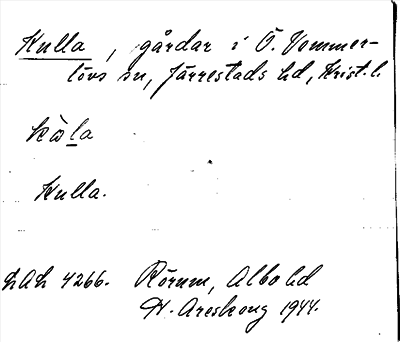 Kulla, gårdar i Ö. Vemmer-
lövs sn, Järrestads hd, Krist. l.
Kulla.
LAL 4266. Rörum, Albo hd
H. Areskoug 1944.